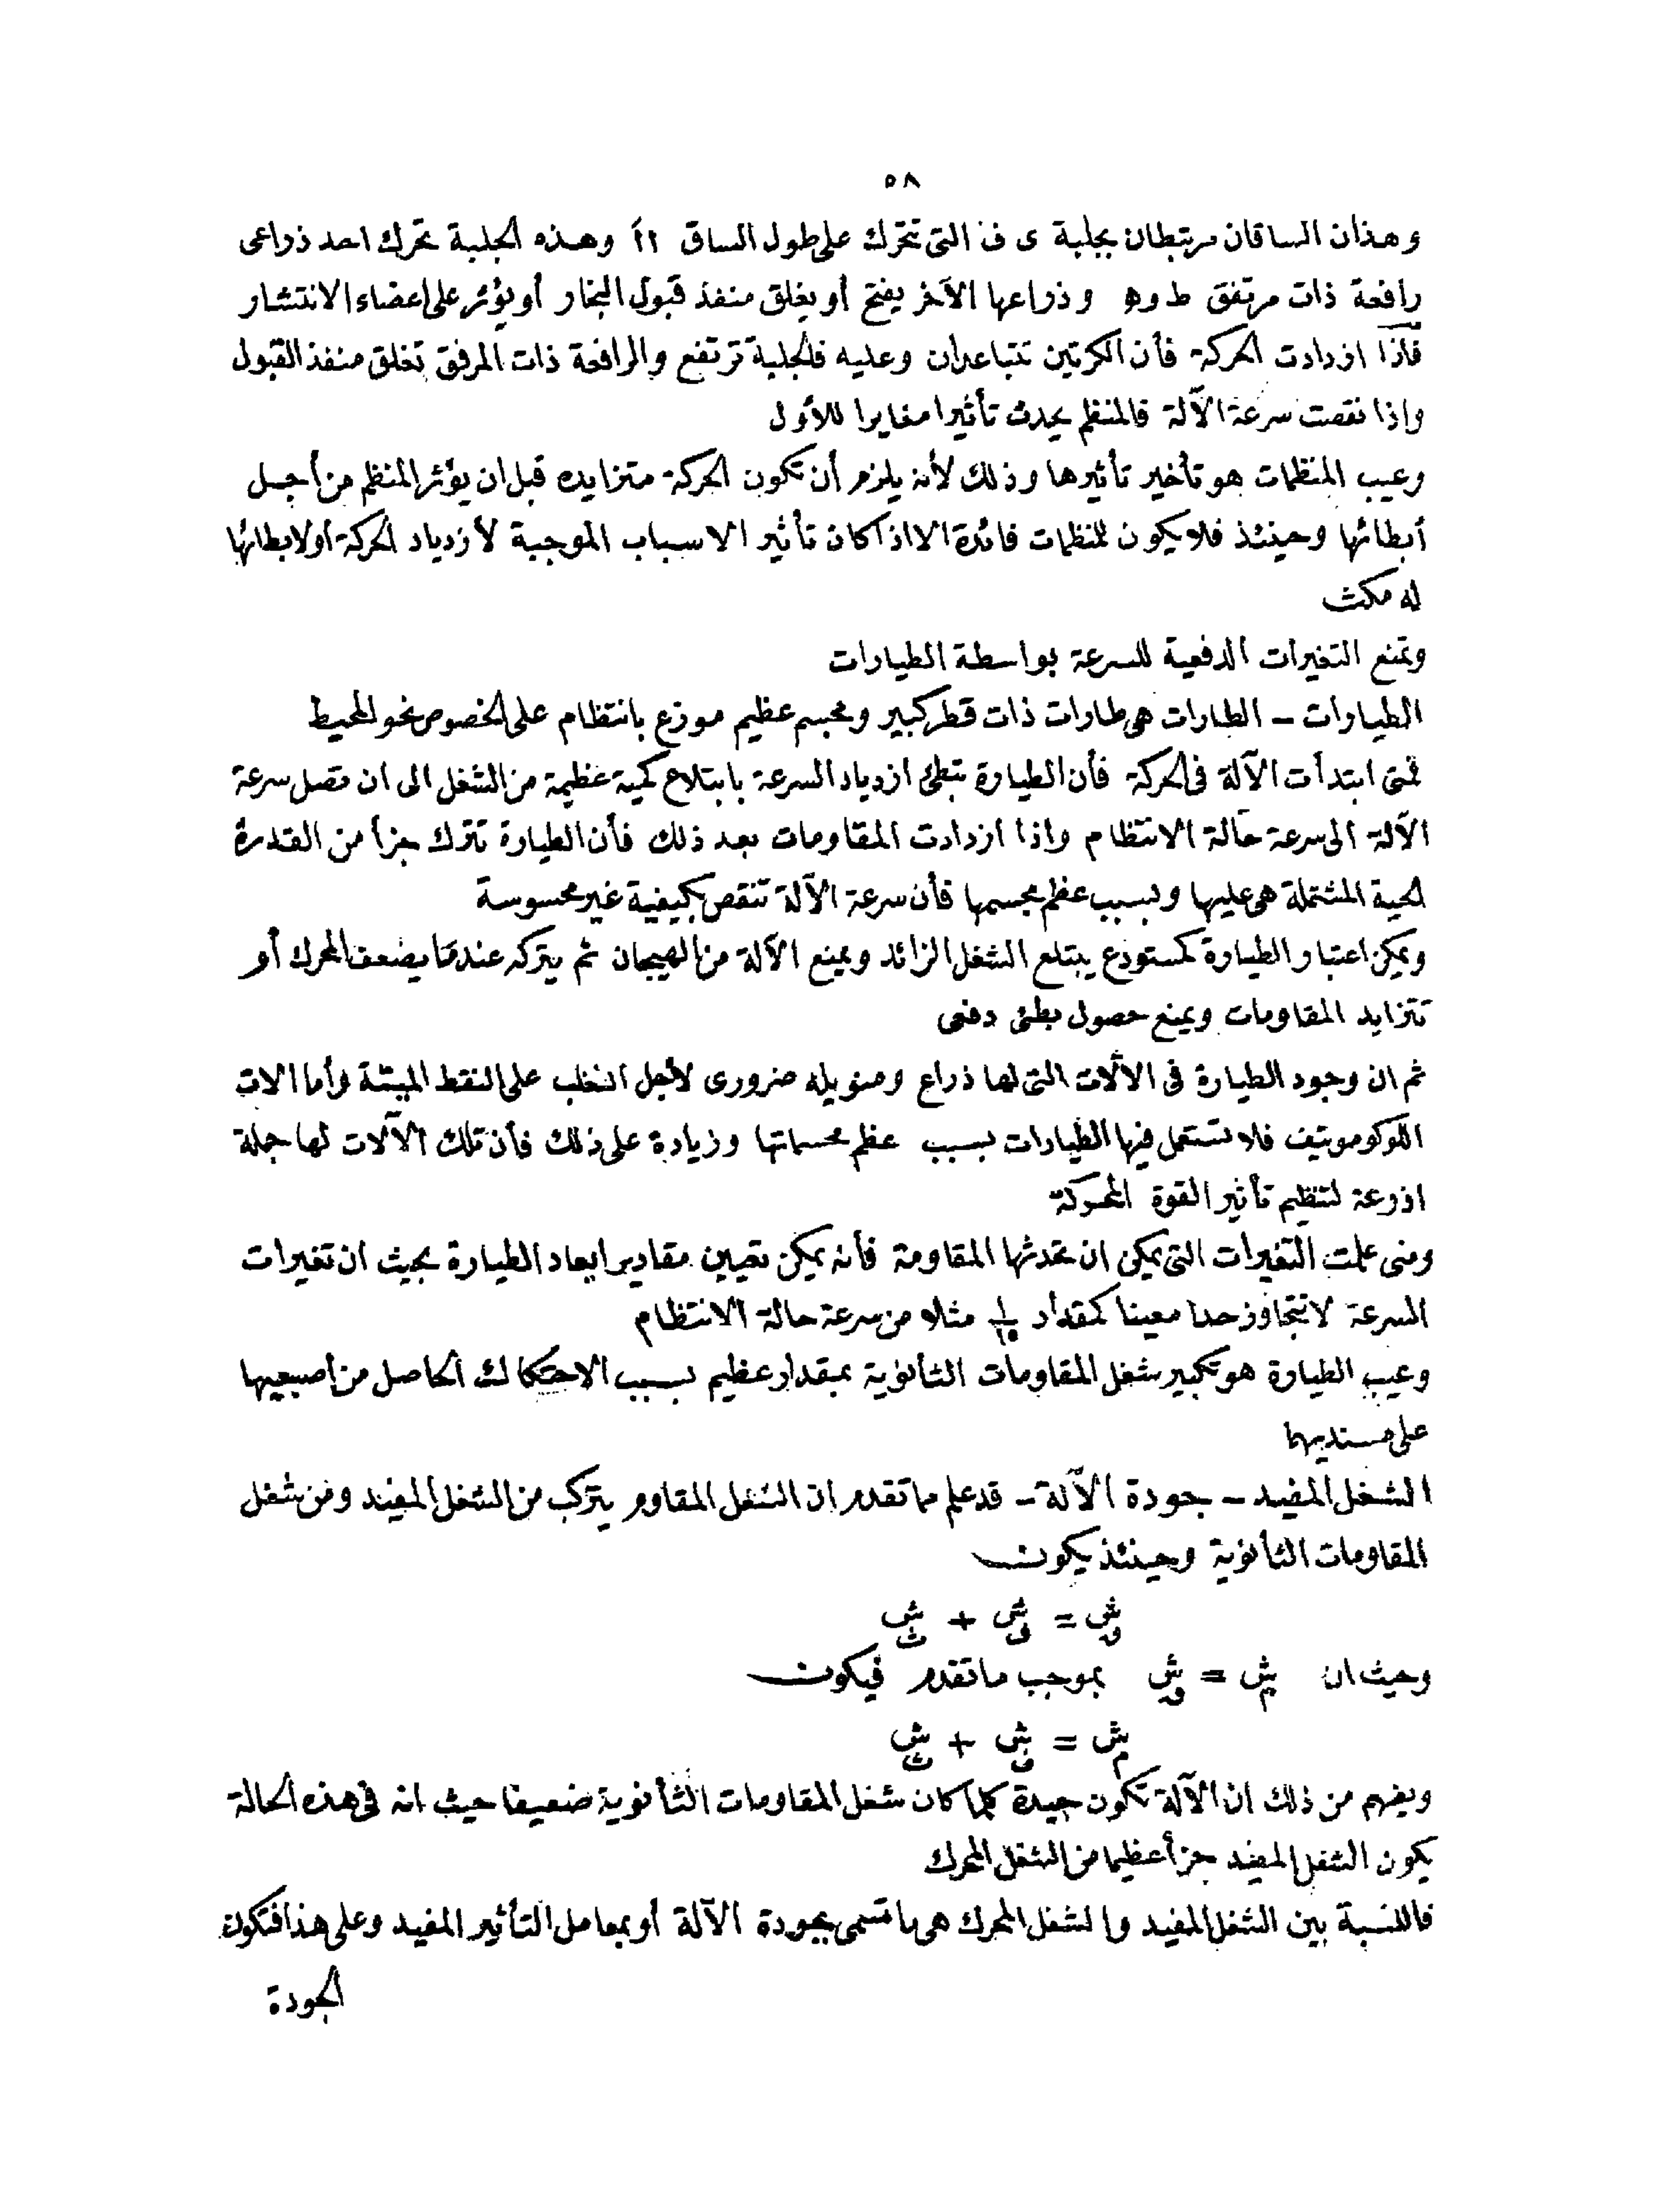 ٥٨
وهذان الساقان مرتبطان بجلبة ى ف التى تتحرك على طول الساق أأ وهذه الجلبة تحرك احد ذراعى
رافعة ذات مرتفق ط و ه وذراعها الآخر يفتح أو يغلق منفذ قبول البخار أو يؤثر على اعضاء الانتشار
فاذا ازدادت الحركة فأن الكرتين تتباعدان وعليه فالجلبة ترتفع والرافعة ذات المرفق تغلق منفذ القبول
واذا نقصت سرعة الآلة فالمنظم يحدث تأثيرا مغايرا للأول
وعيب المنظمات هو تأخير تأثيرها وذلك لأنه يلزم أن تكون الحركة متزايده قبل ان يؤثر المنظم من أجل
أبطائها وحينئذ فلا يكون للمنظمات فائدة الا اذا كان تأثير الاسباب الموجبة لأزدياد الحركة أو لابطائها
له مكث
وتمنع التغيرات الدفعية للسرعة بواسطة الطيارات
الطيارات – الطارات هى طارات ذات قطر كبير ومجسم عظيم موزع بانتظام على الخصوص نحو المحيط
فمتى ابتدأت الآلة فى الحركة فأن الطيارة تبطئ ازدياد السرعة بابتلاع كمية عظيمة من الشغل الى ان تصل سرعة
الآلة الى سرعة حالة الانتظام واذا ازدادت المقاومات بعد ذلك فأن الطيارة تترك جزأ من القدرة
الحية المشتملة هى عليها وبسبب عظم مجسمها فأن سرعة الآلة تنقص بكيفية غير محسوسة
ويمكن اعتبار الطيارة كمستودع يبتلع الشغل الزائد ويمنع الآلة من الهيجان ثم يتركه عندما يضعف المحرك أو
تتزايد المقاومات ويمنع حصول بطئ دفعى
ثم ان وجود الطيارة فى الآلات التى لها ذراع ومنويله ضرورى لأجل التغلب على النقط الميتة وأما الات
اللوكوموتيف فلا تستعمل فيها الطيارات بسبب عظم مجسماتها وزيادة على ذلك فأن تلك الآلات لها جملة
اذرعة لتنظيم تأثير القوة المحركة
ومتى علمت التغيرات التى يمكن ان تحدثها المقاومة فأنه يمكن تعيين مقادير ابعاد الطيارة بحيث ان تغيرات
السرعة لا تتجاوز حدا معينا كمقدار ١/١٥ مثلا من سرعة حالة الانتظام
وعيب الطيارة هو تكبير شغل المقاومات الثأنوية بمقدار عظيم بسبب الاحتكاك الحاصل من أصبعيها
على مسنديهما
الشغل المفيد – جودة الآلة – قد علم مما تقدم ان الشغل المقاوم يتركب من الشغل المفيد ومن شغل
المقاومات الثأنوية وحينئذ يكون
ش = ش + ش
وحيث ان ش = ش بموجب ما تقدم فيكون
ش = ش + ش
ويفهم من ذلك ان الآلة تكون جيدة كلما كان شغل المقاومات الثأنوية ضعيفا حيث انه فى هذه الحالة
يكون الشغل المفيد جزأ عظيما من الشغل المحرك
فالنسبة بين الشغل المفيد والشغل المحرك هى ما تسمى بجودة الآلة أو بمعامل التأثير المفيد وعلى هذا فتكون
الجودة